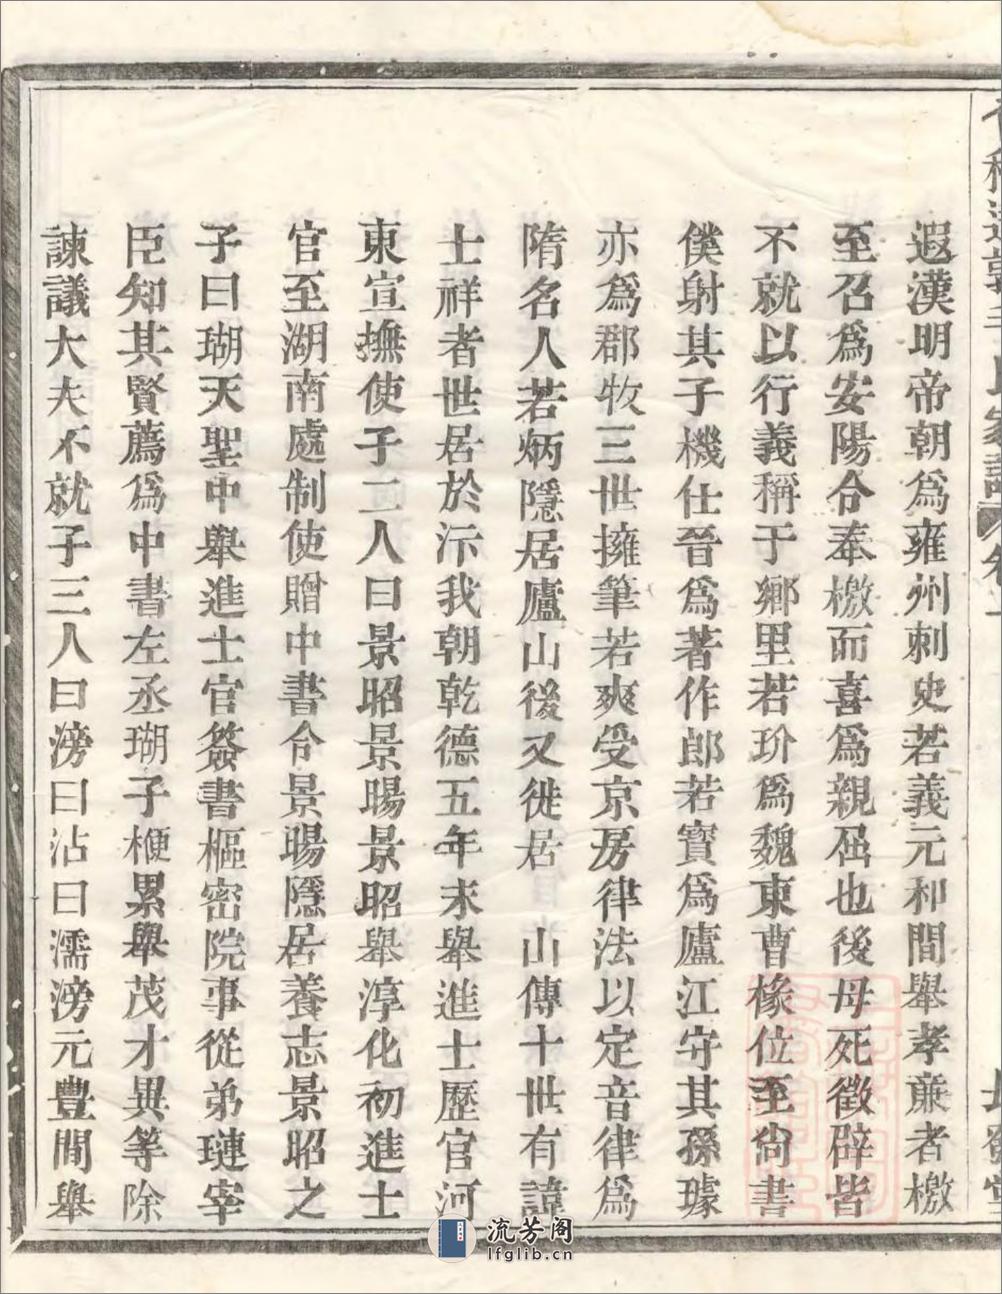 遐漢明帝朝爲雍州刺史若義元和間舉孝亷者檄
至召爲安陽令奉檄而喜爲親屈也後母死徵辟皆
不就以行義稱于鄉里若玠爲魏東曹椽位至尙書
僕射其子機仕晉爲著作郎若寶爲廬江守其孫璩
亦爲郡牧三世擁筆若爽受京房律法以定音律爲
隋名人若炳隱居廬山後又徙居　山傳十世有諱
士祥者世居於沶我朝乾德五年末舉進士歷官河
東宣撫使子二人曰景昭景暘景昭舉淳化初進士
官至湖南處制使贈中書令景暘隱居養志景昭之
子曰瑚天聖中舉進士官簽書樞密院事從弟璉宰
臣知其賢薦爲中書左丞瑚子楩累舉茂才異等除
諫議大夫不就子三人曰滂曰沾曰濡滂元豐間舉
流芳阁
lfglib.cn